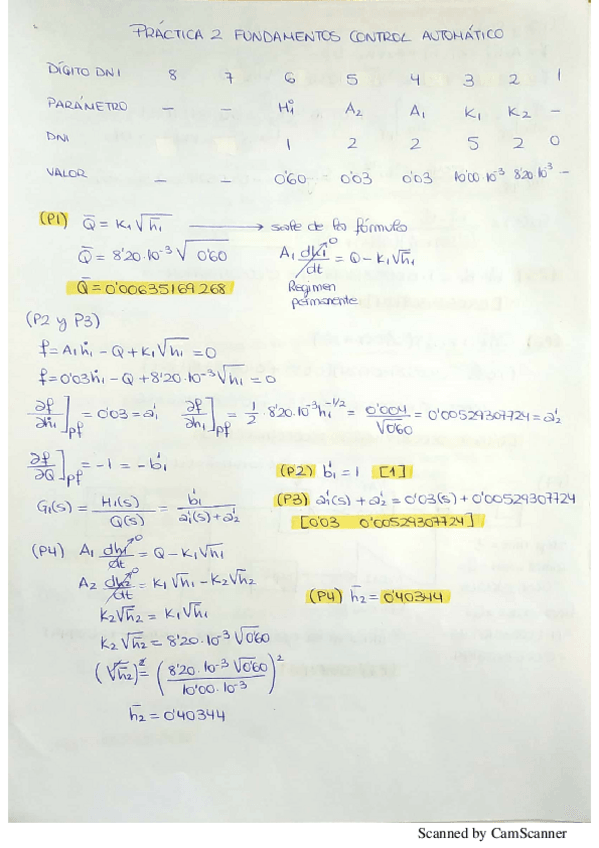 PRÁCTICA 2 FUNDAMENTOS CONTROL AUTOMÁTICO
DÍGITO DNI 8 7 6 5 4 3 2 1
PARÁMETRO — — H̄i A₂ A₁ K₁ K₂ —
DNI 1 2 2 5 2 0
VALOR — — 0'60 0'03 0'03 10'00·10⁻³ 8'20·10⁻³ —
(P1) Q̄ = K₁√h̄₁ ⟶ sale de la fórmula
Q̄ = 8'20·10⁻³ √0'60 A₁ dh₁/dt ↗0 = Q - K₁√h₁
Q̄ = 0'00635169268 Régimen permanente
(P2 y P3)
f = A₁ḣ₁ - Q + K₁√h₁ = 0
f = 0'03ḣ₁ - Q + 8'20·10⁻³√h₁ = 0
∂f/∂ḣ₁]pf = 0'03 = a'₁ ∂f/∂h₁]pf = 1/2 · 8'20·10⁻³h₁^(-1/2) = 0'004/√0'60 = 0'00529307724 = a'₂
∂f/∂Q]pf = -1 = -b'₁ (P2) b'₁ = 1 [1]
G₁(s) = H₁(s)/Q(s) = b'₁/(a'₁(s) + a'₂) (P3) a'₁(s) + a'₂ = 0'03(s) + 0'00529307724
[0'03 0'00529307724]
(P4) A₁ dh₁/dt ↗0 = Q - K₁√h₁
A₂ dh₂/dt ↗0 = K₁√h₁ - K₂√h₂
K₂√h₂ = K₁√h₁ (P4) h̄₂ = 0'40344
K₂√h₂ = 8'20·10⁻³ √0'60
(√h̄₂)² = (8'20·10⁻³ √0'60 / 10'00·10⁻³)²
h̄₂ = 0'40344
Scanned by CamScanner